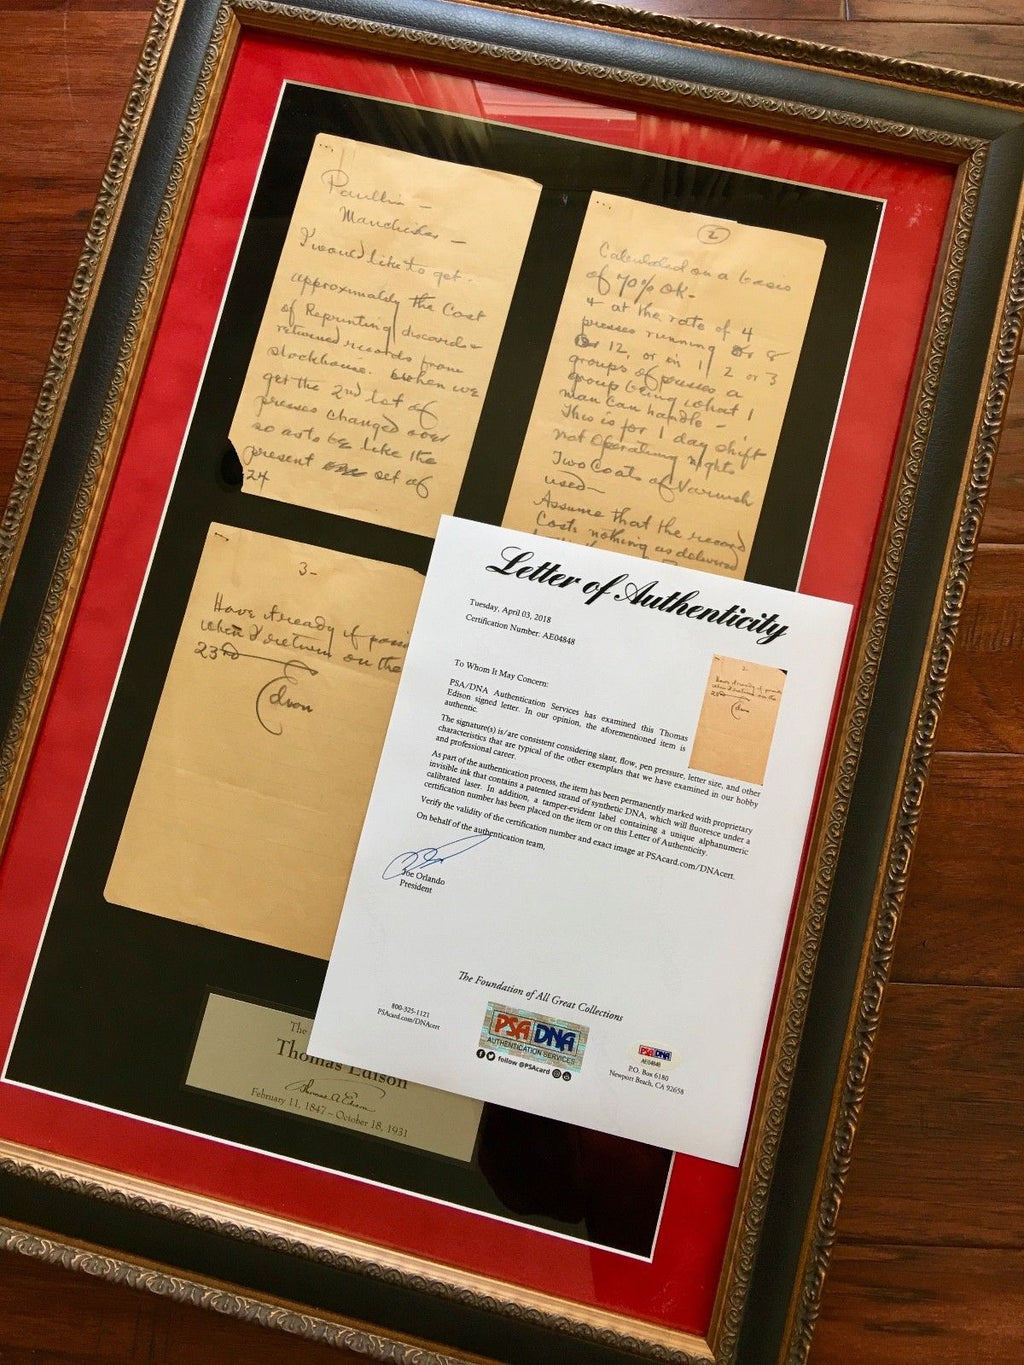 Paullin -
Manchester -
I would like to get
approximately the Cost
of Reprinting discards &
returned records from
stockhouse. when we
get the 2nd lot of
presses changed over
so as to be like the
present set of
24
2
Calculated on a basis
of 70% ok-
4 - at the rate of 4
presses running or 8
or 12, or in 1 2 or 3
groups of presses a
group being what 1
man can handle -
This is for 1 day shift
not operating nights
Two Coats of Varnish
used -
Assume that the record
Costs nothing as delivered
3-
Have it ready if possi
when I return on the
23rd
Edison
Letter of Authenticity
Tuesday, April 03, 2018
Certification Number: AE04848
To Whom It May Concern:
PSA/DNA Authentication Services has examined this Thomas
Edison signed letter. In our opinion, the aforementioned item is
authentic.
The signature(s) is/are consistent considering slant, flow, pen pressure, letter size, and other
characteristics that are typical of the other exemplars that we have examined in our hobby
and professional career.
As part of the authentication process, the item has been permanently marked with proprietary
invisible ink that contains a patented strand of synthetic DNA, which will fluoresce under a
calibrated laser. In addition, a tamper-evident label containing a unique alphanumeric
certification number has been placed on the item or on this Letter of Authenticity.
Verify the validity of the certification number and exact image at PSAcard.com/DNAcert.
On behalf of the authentication team,
Joe Orlando
President
2
Have it ready if possi
when I return on the
23rd
Edison
The Foundation of All Great Collections
800-325-1121
PSAcard.com/DNAcert
PSA DNA
AUTHENTICATION SERVICES
follow @PSAcard
PSA DNA
AE04848
P.O. Box 6180
Newport Beach, CA 92658
The
Thomas Edison
Thomas A Edison
February 11, 1847 – October 18, 1931